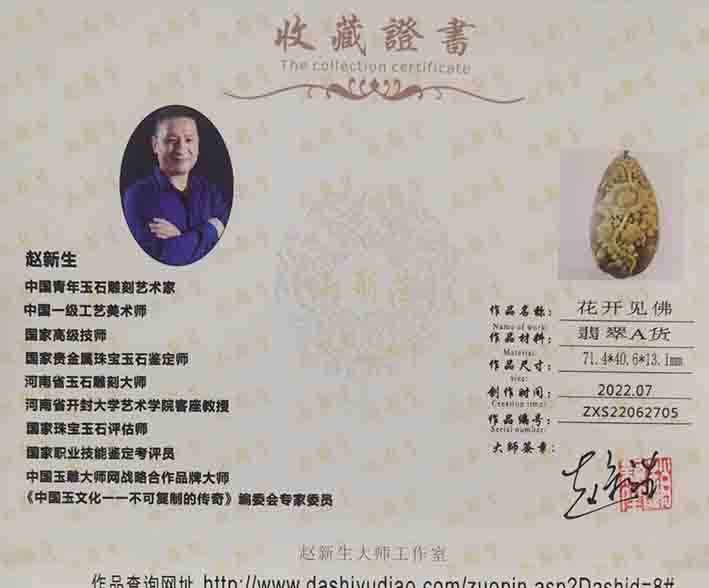 收藏證書
The collection certificate
赵新生
中国青年玉石雕刻艺术家
中国一级工艺美术师
国家高级技师
国家贵金属珠宝玉石鉴定师
河南省玉石雕刻大师
河南省开封大学艺术学院客座教授
国家珠宝玉石评估师
国家职业技能鉴定考评员
中国玉雕大师网战略合作品牌大师
《中国玉文化一一不可复制的传奇》编委会专家委员
作品名称： 花开见佛
Name of work:
作品材料： 翡翠A货
Material:
作品尺寸： 71.4*40.6*13.1mm
size:
创作时间： 2022.07
Creation time:
作品编号： ZXS22062705
Serial number:
大师签章：
赵新生大师工作室
作品查询网址 http://www.dashiyudiao.com/zuopin.asp?Dashid=8#